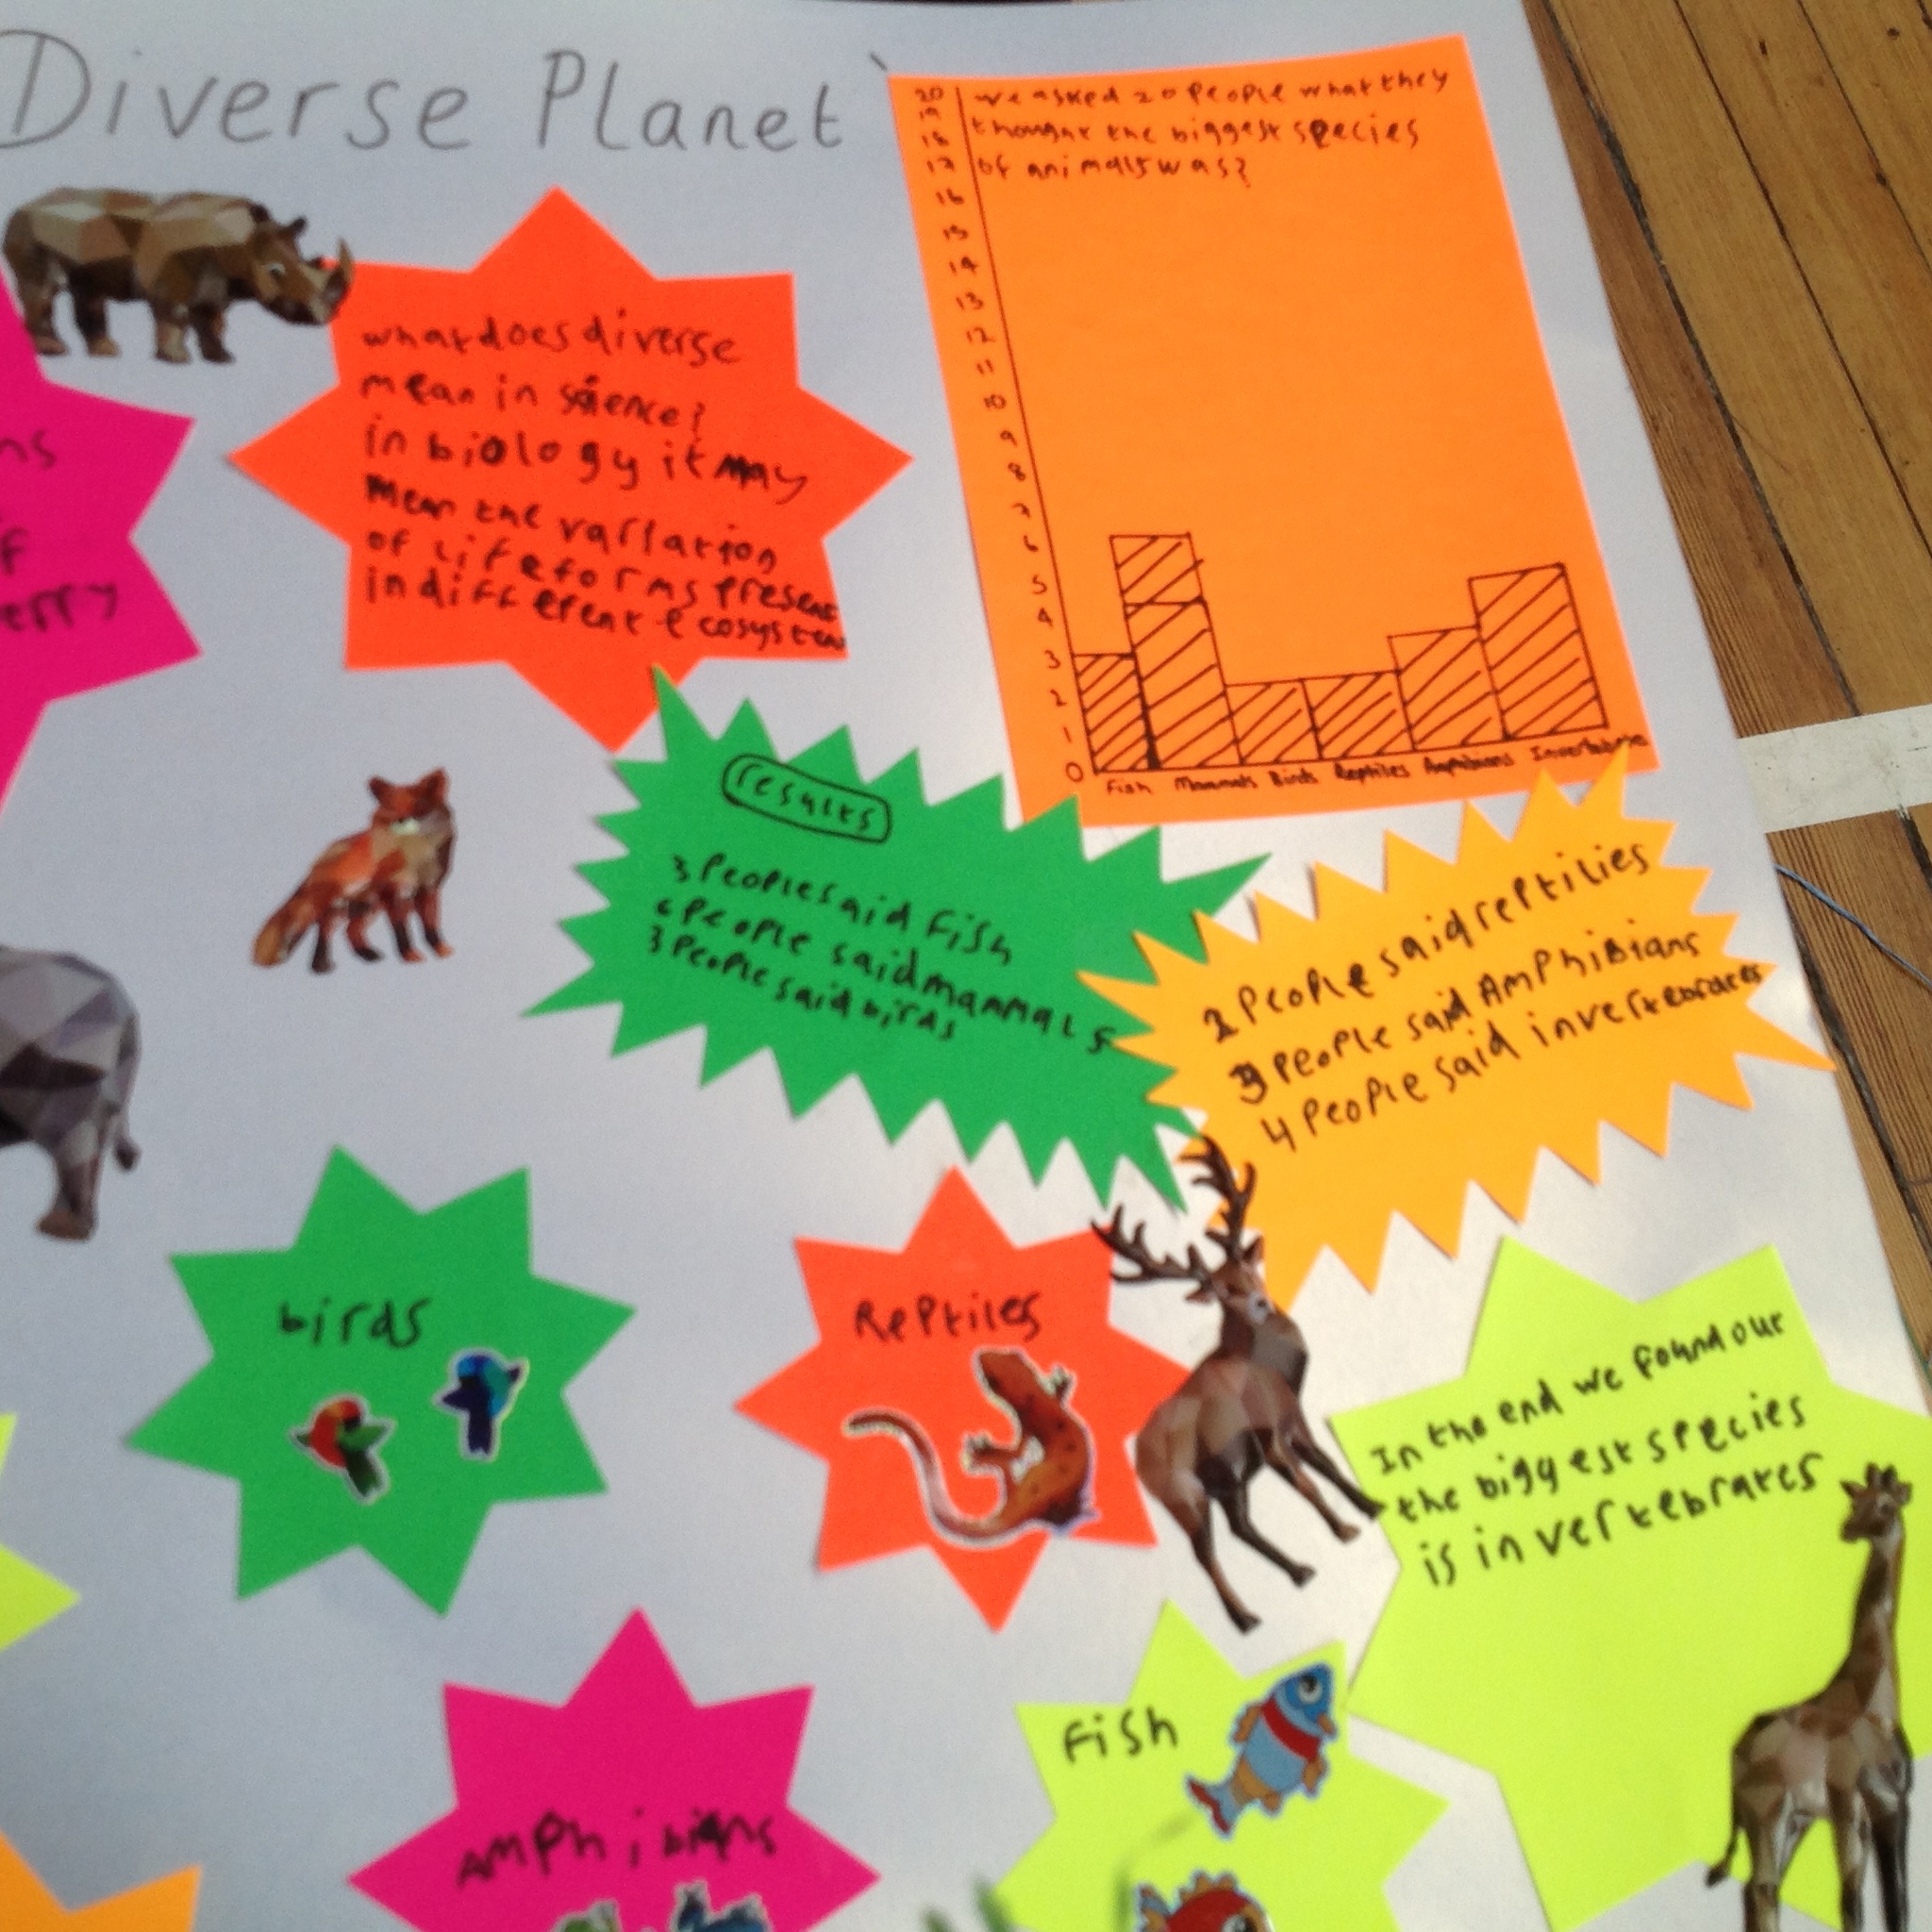 Diverse Planet
we asked 20 People what they
thought the biggest species
of animals was?
20
19
18
17
16
15
14
13
12
11
10
9
8
7
6
5
4
3
2
1
0
Fish Mammals Birds Reptiles Amphibians Invertebrate
what does diverse
mean in science?
in biology it may
mean the variation
of lifeforms present
in different ecosystem
ns
f
erry
results
3 People said Fish
6 People said mammals
3 People said birds
2 People said reptilies
3 People said AmPhiBians
4 People said invertebrates
birds
Reptiles
In the end we found out
the biggest species
is invertebrates
Fish
AmPhibians